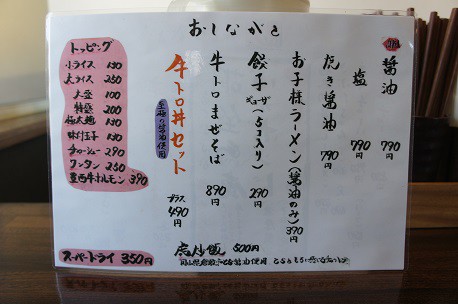 おしながき
醤油 790
塩 790
たき醤油 790
お子様ラーメン(醤油のみ) 390
餃子 ギョーザ(5コ入り) 290
牛トロまぜそば 890
牛トロ丼セット プラス490
至極の醤油使用
虎炒飯 500円
トッピング
小ライス 150
大ライス 250
大盛 100
特盛 200
極太麺
味付玉子
チャーシュー 290
ワンタン 250
豊西牛ホルモン 390
スーパードライ 350円